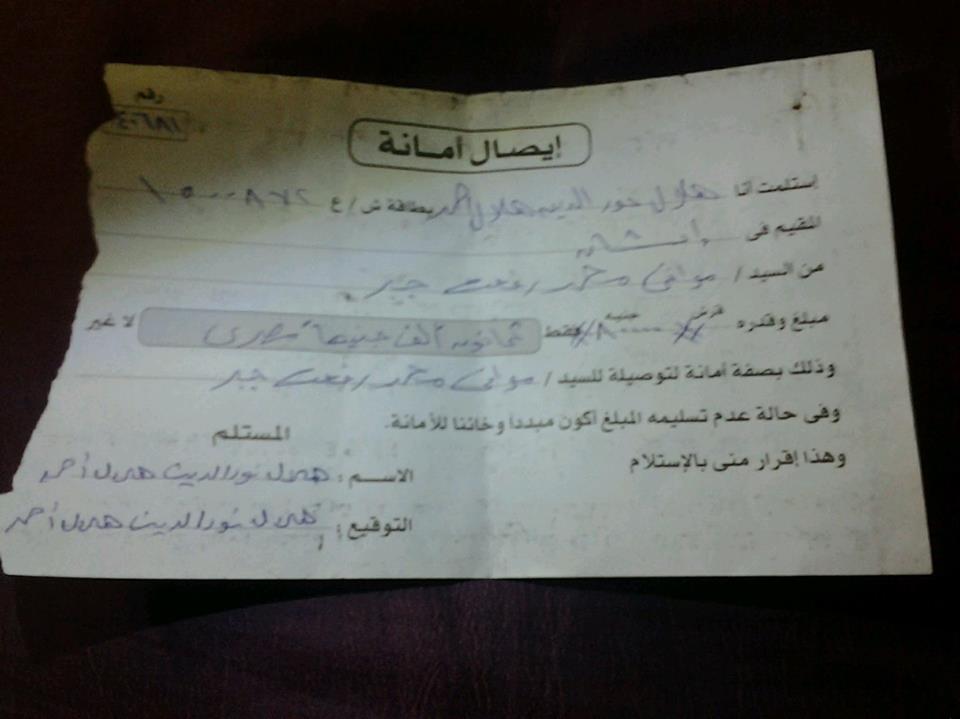 رقم
٤٠٦٨١
إيصال أمانة
إستلمت أنا هلال نور الدين هلال أحمد بطاقة ش / ع
المقيم فى
من السيد / محمد رفعت جبر
مبلغ وقدره قرش جنيه ٨٠٠٠٠ فقط ثمانون ألف جنيهاً مصرى لا غير
وذلك بصفة أمانة لتوصيلة للسيد / محمد رفعت جبر
وفى حالة عدم تسليمه المبلغ أكون مبدداً وخائنا للأمانة.
وهذا إقرار منى بالإستلام
المستلم
الاسم : هلال نور الدين هلال أحمد
التوقيع : هلال نور الدين هلال أحمد